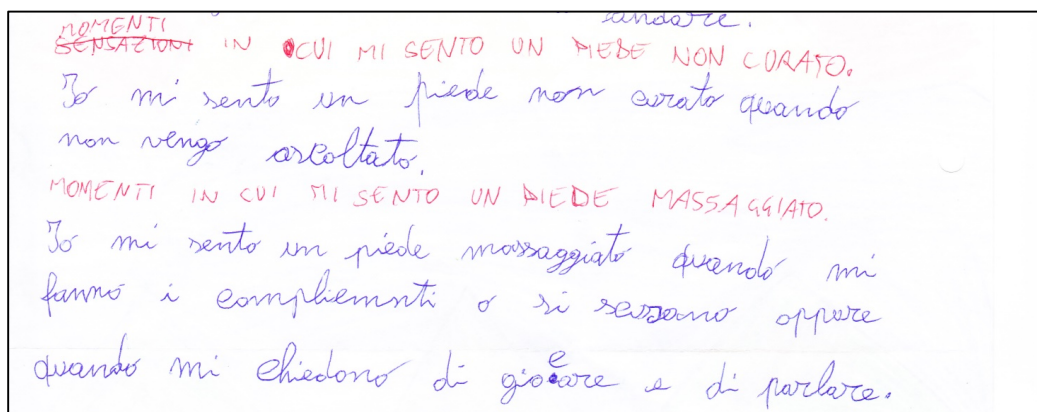 andare.
MOMENTI
SENSAZIONI IN CUI MI SENTO UN PIEDE NON CURATO.
Io mi sento un piede non curato quando
non vengo ascoltato.
MOMENTI IN CUI MI SENTO UN PIEDE MASSAGGIATO.
Io mi sento un piede massaggiato quando mi
fanno i compliemnti o si scusano oppure
quando mi chiedono di giocare e di parlare.